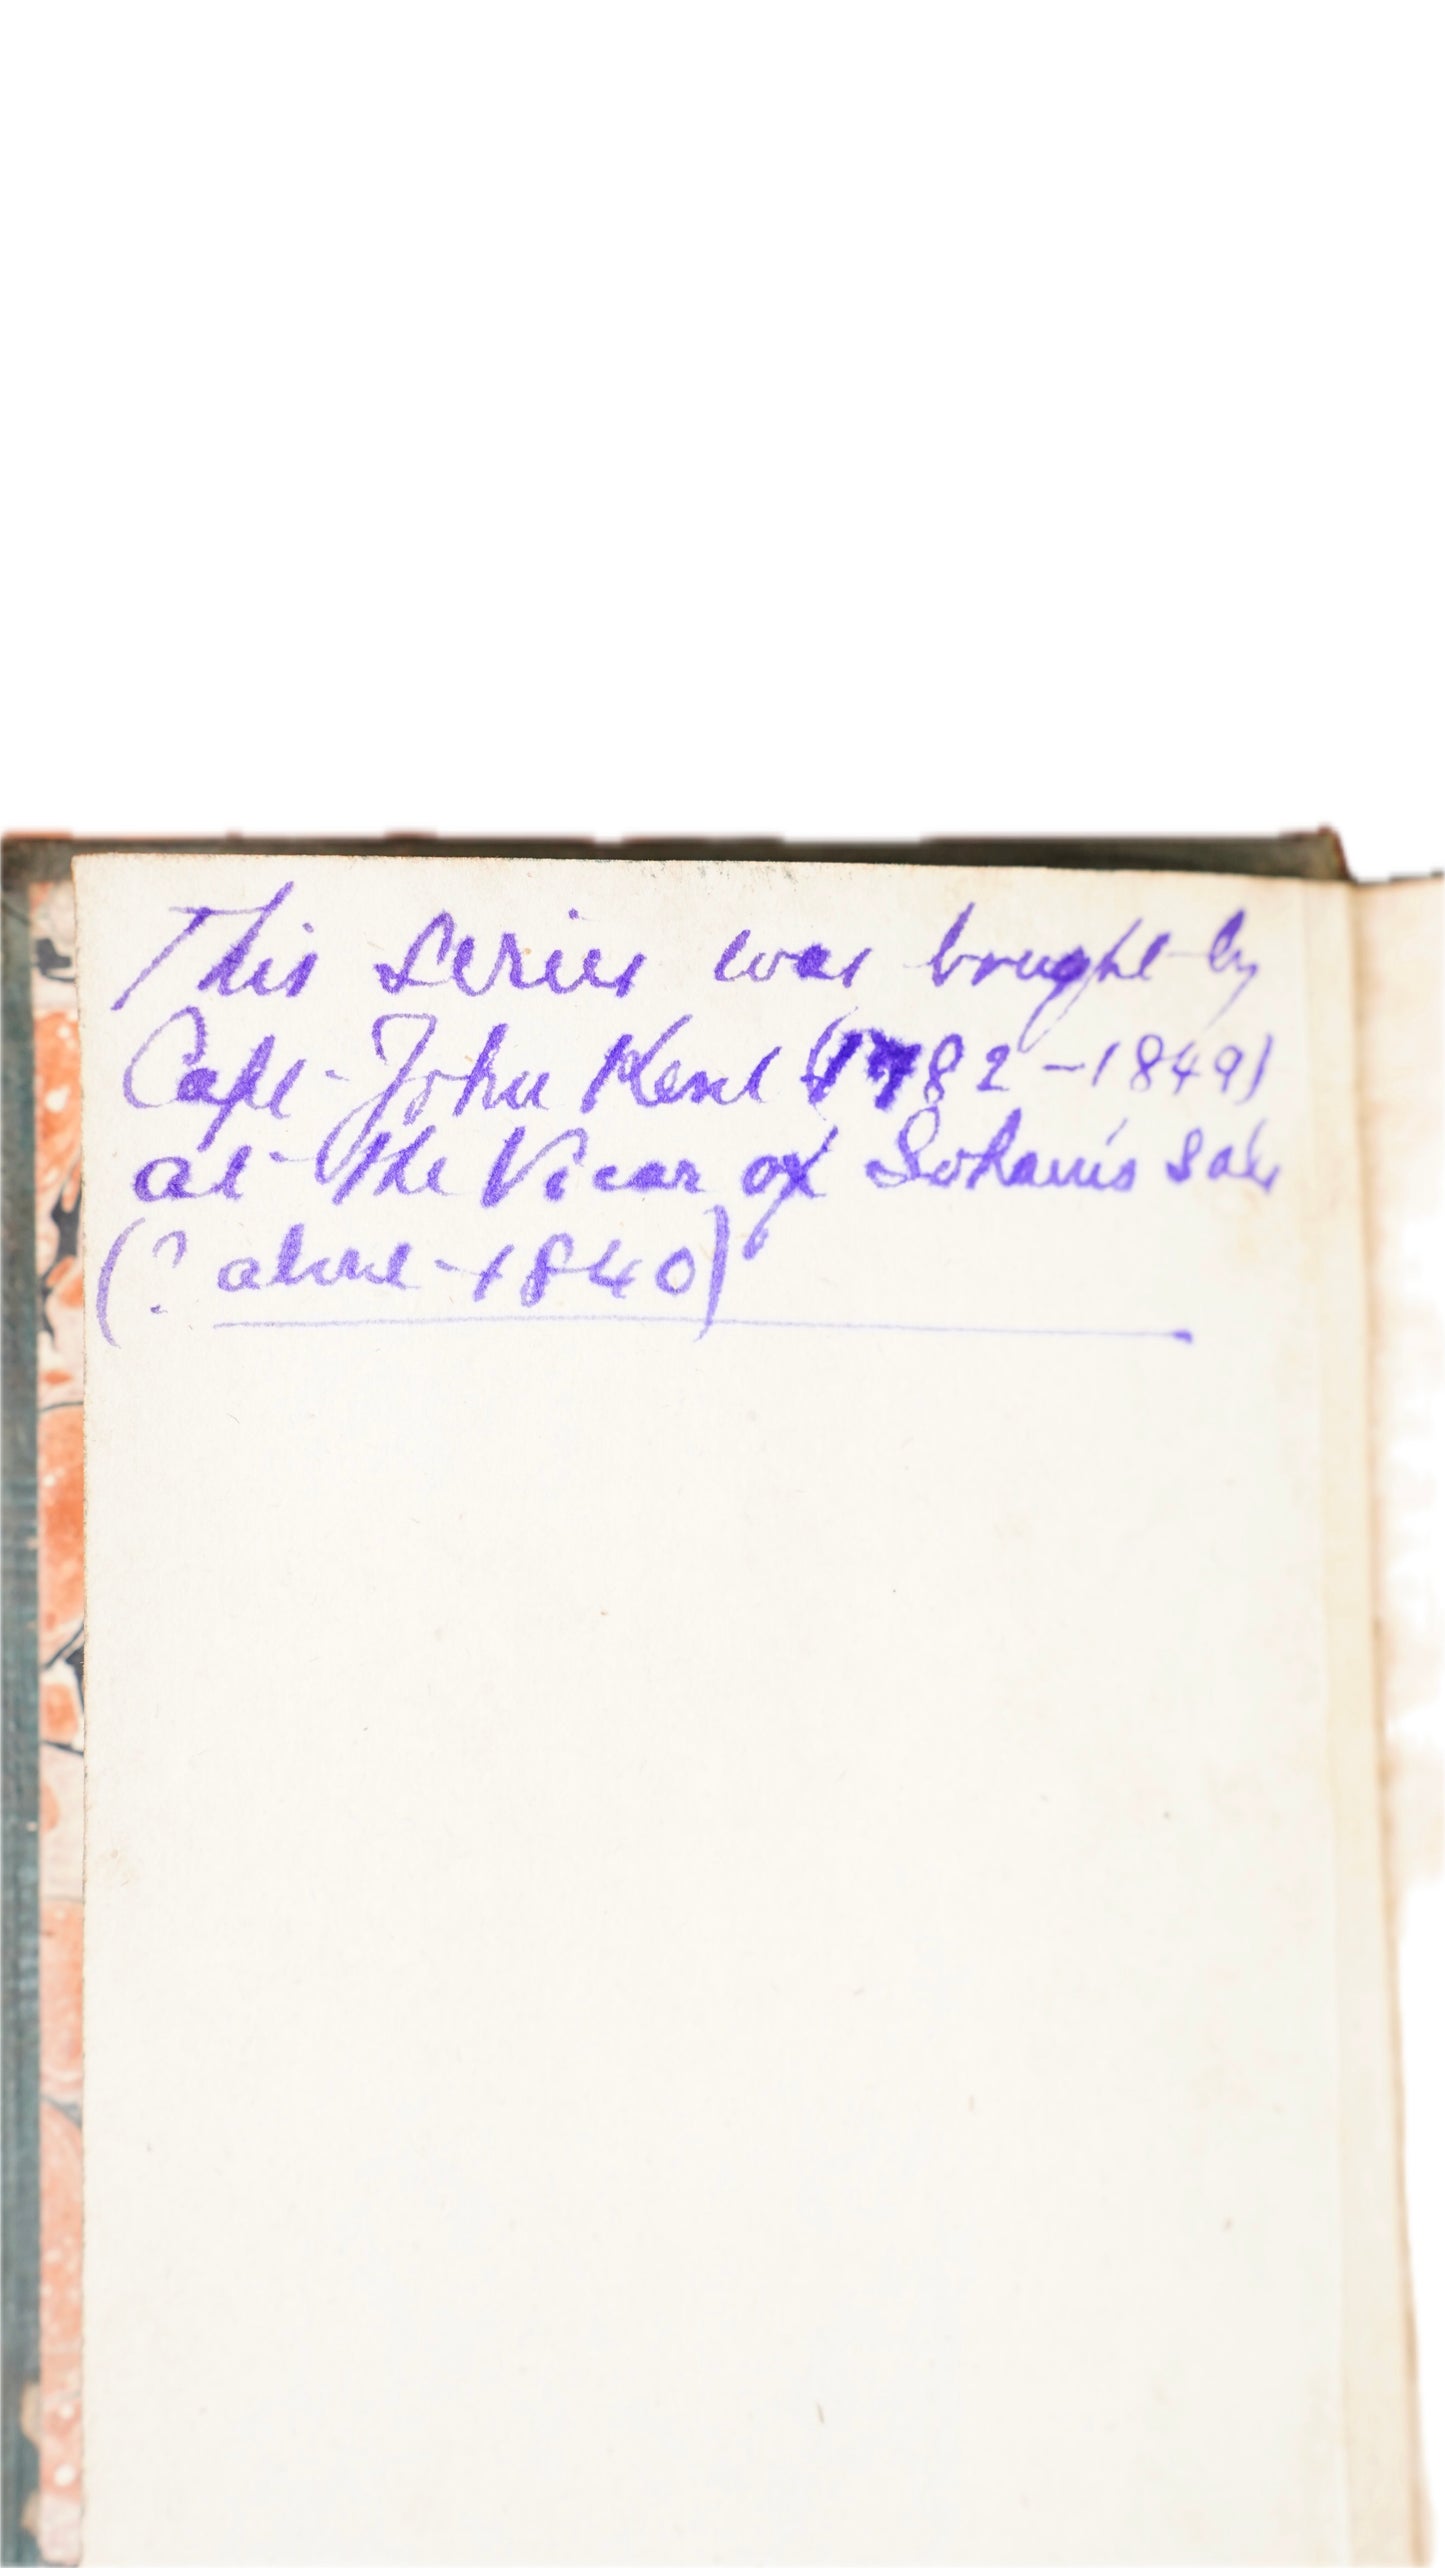 This series was bought by
Capt. John Kent (1782 - 1849)
at the Vicar of Soham's sale
(? about 1840)